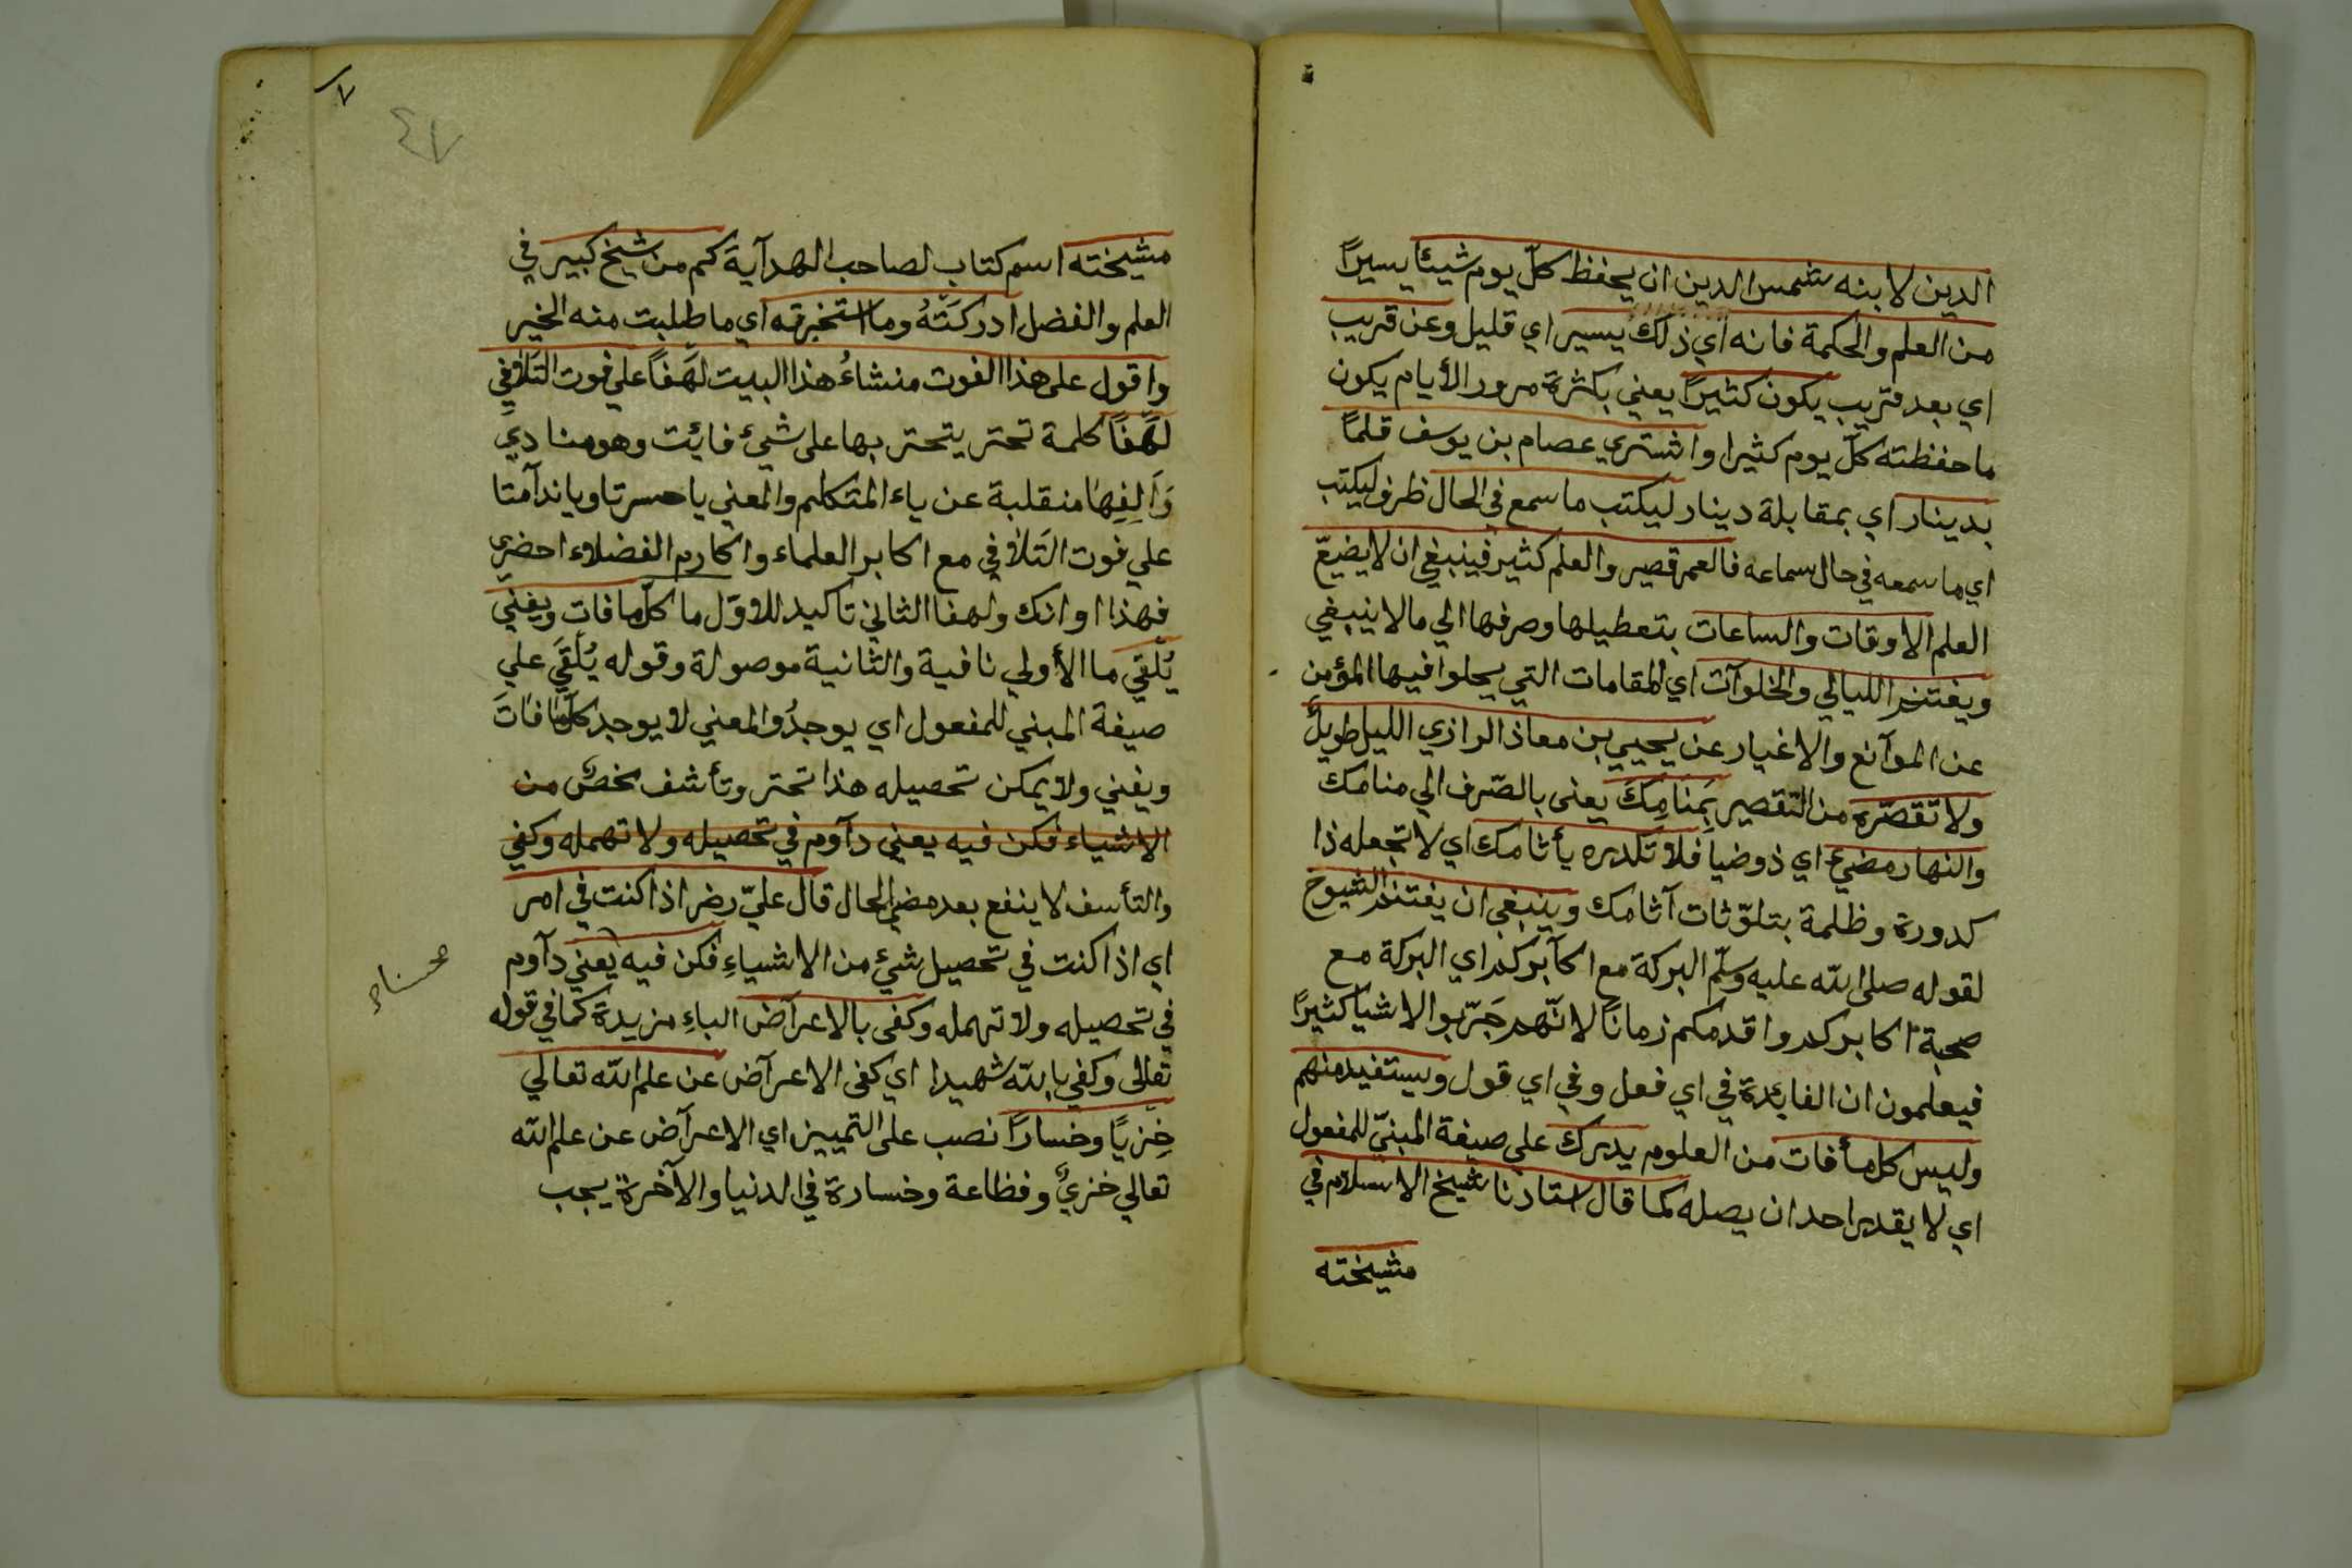 الدين لابنه شمس الدين ان يحفظ كلّ يوم شيئا يسيرًا
من العلم والحكمة فانه اي ذلك يسير اي قليل وعن قريب
اي بعد قريب يكون كثيرًا يعني بكثرة مرور الأيام يكون
ما حفظته كلّ يوم كثيرا واشتري عصام بن يوسف قلمًا
بدينار اي بمقابلة دينار ليكتب ما سمع في الحال ظرف ليكتب
اي ما سمعه في حال سماعه فالعمر قصير والعلم كثير فينبغي ان لا يضيّع
العلم الاوقات والساعات بتعطيلها وصرفها الي ما لا ينبغي
ويغتنم الليالي والخلوآت اي المقامات التي يحلوا فيها المؤمن
عن الموآنع والاغيار عن يحيي بن معاذ الرازي الليل طويلٌ
ولا تقصّره من التقصير بِمَنَامِكَ يعنى بالصّرف الي منامك
والنهار مضيئ اي ذو ضيا فلا تكدره بأثامك اي لا تجعله ذا
كدورة وظلمة بتلوّثات آثامك وينبغي ان يغتنم الشيوخ
لقوله صلى الله عليه وسلّم البركة مع اكآبركم اي البركة مع
صحبة اكابركم واقدمكم زمانًا لانّهم جَرّبوا الاشيا كثيرًا
فيعلمون ان الفائدة في اي فعل وفي اي قول ويستفيد منهم
وليس كل ما فات من العلوم يدرك على صيغة المبنيّ للمفعول
اي لا يقدر احد ان يصله كما قال استادنا شيخ الاسلام في
مشيخته
٤٧
مشيخته اسم كتاب لصاحب الهدآية كم من شيخ كبير في
العلم والفضل ادركَتْهُ وما استخبرته اي ما طلبت منه الخير
واقول على هذا الفوت منشاءُ هذا البيت لَهَفًا علي فوت التَلافي
لَهَفًا كلمة تحتر يتحتر بها على شيئ فائت وهو منادي
وَاَلِفِهَا منقلبة عن ياء المتكلم والمعني يا حسرتا ويا ندآمتا
علي فوت التَلاقي مع اكابر العلماء واكارم الفضلاء احضري
فهذا اوانك ولهفا الثاني تاكيد للاوّل ما كلّ ما فات ويفني
يُلقي ما الأولي نافية والثانية موصولة وقوله يُلْقَي علي
صيغة المبني للمفعول اي يوجدُ والمعني لا يوجد كلّ ما فاتَ
ويفني ولا يمكن تحصيله هذا تحتر وتأسف محض من
الاشياء فكن فيه يعني دآوم في تحصيله ولا تهمله وكفي
والتأسف لا ينفع بعد مضي الحال قال عليّ رضر اذا كنت في امر
اي اذا كنت في تحصيل شيئ من الاشياءِ فكن فيه يعني دآوم
في تحصيله ولا تهمله وكفى بالاعرآض الباءِ مزيدة كما في قوله
تعالى وكفي بالله شهيدا اي كفى الاعرآض عن علم الله تعالي
خِزيًا وخسارًا نصب على التمييز اي الاعرآض عن علم الله
تعالي خزيٌ وفظاعة وخسارة في الدنيا والآخرة يجب